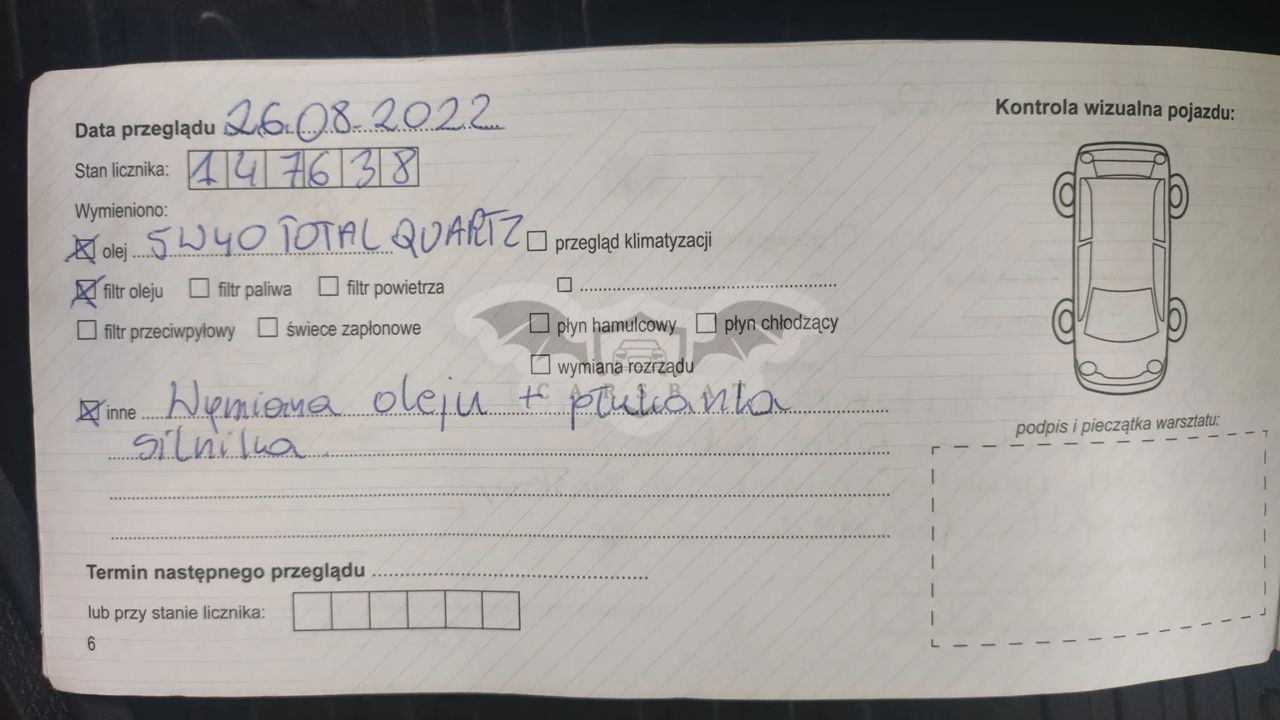 Data przeglądu 26.08.2022
Kontrola wizualna pojazdu:
Stan licznika: 147638
Wymieniono:
olej 5W40 TOTAL QUARTZ
przegląd klimatyzacji
filtr oleju filtr paliwa filtr powietrza
filtr przeciwpyłowy świece zapłonowe
płyn hamulcowy płyn chłodzący
wymiana rozrządu
CARSBAT
inne Wymiana oleju + płukanka
silnika
podpis i pieczątka warsztatu:
Termin następnego przeglądu
lub przy stanie licznika:
6